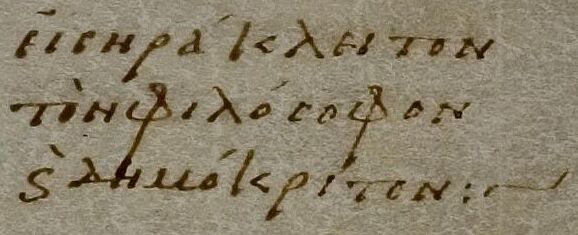 εἰς ἡράκλειτον
τὸν φιλόσοφον
ϛ̀ δημόκριτον:~